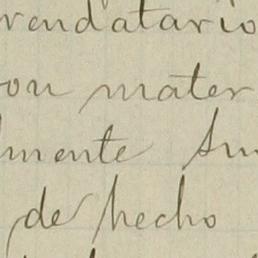 rendatario
on mater
lmente su
de hecho